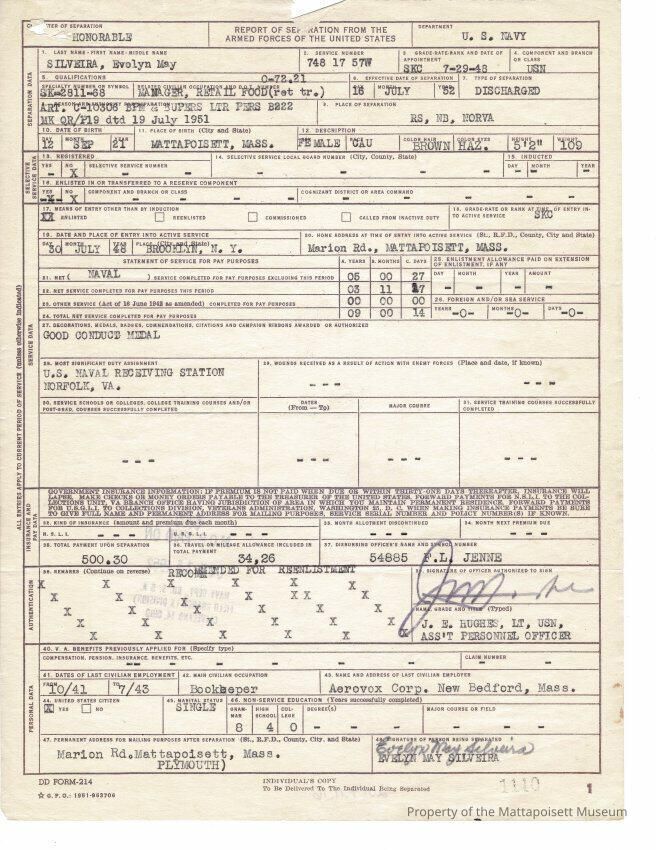 CHARACTER OF SEPARATION
HONORABLE
REPORT OF SEPARATION FROM THE
ARMED FORCES OF THE UNITED STATES
DEPARTMENT
U. S. NAVY
1. LAST NAME - FIRST NAME - MIDDLE NAME
SILVEIRA, Evelyn May
2. SERVICE NUMBER
748 17 57W
3. GRADE-RATE-RANK AND DATE OF APPOINTMENT
SKC 7-29-48
4. COMPONENT AND BRANCH OR CLASS
USN
5. QUALIFICATIONS
SPECIALTY NUMBER OR SYMBOL
SK-2811-68
0-72.21
MANAGER, RETAIL FOOD(ret tr.)
6. EFFECTIVE DATE OF SEPARATION
DAY MONTH YEAR
16 JULY 52
7. TYPE OF SEPARATION
DISCHARGED
ART. C-10306 BPM & SUPERS LTR PERS B222
MK QR/P19 dtd 19 July 1951
9. PLACE OF SEPARATION
RS, NB, NORVA
10. DATE OF BIRTH
DAY MONTH YEAR
12 SEP 21
11. PLACE OF BIRTH (City and State)
MATTAPOISETT, MASS.
12. DESCRIPTION
SEX RACE COLOR HAIR COLOR EYES HEIGHT WEIGHT
FEMALE CAU BROWN HAZ. 5'2" 109
SELECTIVE SERVICE DATA
13. REGISTERED
YES NO SELECTIVE SERVICE NUMBER
X
14. SELECTIVE SERVICE LOCAL BOARD NUMBER (City, County, State)
15. INDUCTED
DAY MONTH YEAR
16. ENLISTED IN OR TRANSFERRED TO A RESERVE COMPONENT
YES NO COMPONENT AND BRANCH OR CLASS COGNIZANT DISTRICT OR AREA COMMAND
17. MEANS OF ENTRY OTHER THAN BY INDUCTION
ENLISTED REENLISTED COMMISSIONED CALLED FROM INACTIVE DUTY
18. GRADE-RATE OR RANK AT TIME OF ENTRY INTO ACTIVE SERVICE
SKC
19. DATE AND PLACE OF ENTRY INTO ACTIVE SERVICE
DAY MONTH YEAR PLACE (City and State)
30 JULY 48 BROOKLYN, N. Y.
20. HOME ADDRESS AT TIME OF ENTRY INTO ACTIVE SERVICE (St., R.F.D., County, City and State)
Marion Rd., MATTAPOISETT, MASS.
STATEMENT OF SERVICE FOR PAY PURPOSES
A. YEARS B. MONTHS C. DAYS
21. NET ( NAVAL ) SERVICE COMPLETED FOR PAY PURPOSES EXCLUDING THIS PERIOD
05 00 27
22. NET SERVICE COMPLETED FOR PAY PURPOSES THIS PERIOD
03 11 17
23. OTHER SERVICE (Act of 16 June 1942 as amended) COMPLETED FOR PAY PURPOSES
00 00 00
24. TOTAL NET SERVICE COMPLETED FOR PAY PURPOSES
09 00 14
25. ENLISTMENT ALLOWANCE PAID ON EXTENSION OF ENLISTMENT, IF ANY
DAY MONTH YEAR AMOUNT
26. FOREIGN AND/OR SEA SERVICE
YEARS -0- MONTHS -0- DAYS -0-
27. DECORATIONS, MEDALS, BADGES, COMMENDATIONS, CITATIONS AND CAMPAIGN RIBBONS AWARDED OR AUTHORIZED
GOOD CONDUCT MEDAL
SERVICE DATA
28. MOST SIGNIFICANT DUTY ASSIGNMENT
U.S. NAVAL RECEIVING STATION
NORFOLK, VA.
29. WOUNDS RECEIVED AS A RESULT OF ACTION WITH ENEMY FORCES (Place and date, if known)
30. SERVICE SCHOOLS OR COLLEGES, COLLEGE TRAINING COURSES AND/OR POST-GRAD. COURSES SUCCESSFULLY COMPLETED
DATES (From — To)
MAJOR COURSE
31. SERVICE TRAINING COURSES SUCCESSFULLY COMPLETED
ALL ENTRIES APPLY TO CURRENT PERIOD OF SERVICE (unless otherwise indicated)
INSURANCE AND PAY DATA
GOVERNMENT INSURANCE INFORMATION: IF PREMIUM IS NOT PAID WHEN DUE OR WITHIN THIRTY-ONE DAYS THEREAFTER, INSURANCE WILL
LAPSE. MAKE CHECKS OR MONEY ORDERS PAYABLE TO THE TREASURER OF THE UNITED STATES. FORWARD PAYMENTS FOR N.S.L.I. TO THE COL-
LECTIONS UNIT, VA BRANCH OFFICE HAVING JURISDICTION OF AREA IN WHICH YOU MAINTAIN PERMANENT RESIDENCE. FORWARD PAYMENTS
FOR U.S.G.L.I. TO COLLECTIONS DIVISION, VETERANS ADMINISTRATION, WASHINGTON 25, D. C. WHEN MAKING INSURANCE PAYMENTS BE SURE
TO GIVE FULL NAME AND PERMANENT ADDRESS FOR MAILING PURPOSES, SERVICE NUMBER AND POLICY NUMBER(S) IF KNOWN.
32. KIND OF INSURANCE (amount and premium due each month)
N.S.L.I. U.S.G.L.I.
33. MONTH ALLOTMENT DISCONTINUED
34. MONTH NEXT PREMIUM DUE
35. TOTAL PAYMENT UPON SEPARATION
500.30
36. TRAVEL OR MILEAGE ALLOWANCE INCLUDED IN TOTAL PAYMENT
34,26
37. DISBURSING OFFICER'S NAME AND SYMBOL NUMBER
54885 F.L. JENNE
AUTHENTICATION
38. REMARKS (Continue on reverse)
RECOMMENDED FOR REENLISTMENT
39. SIGNATURE OF OFFICER AUTHORIZED TO SIGN
NAME, GRADE AND TITLE (Typed)
J. E. HUGHES, LT, USN,
ASS'T PERSONNEL OFFICER
40. V. A. BENEFITS PREVIOUSLY APPLIED FOR (Specify type)
COMPENSATION, PENSION, INSURANCE, BENEFITS, ETC.
CLAIM NUMBER
PERSONAL DATA
41. DATES OF LAST CIVILIAN EMPLOYMENT
FROM 10/41 TO 7/43
42. MAIN CIVILIAN OCCUPATION
Bookkeeper
43. NAME AND ADDRESS OF LAST CIVILIAN EMPLOYER
Aerovox Corp. New Bedford, Mass.
44. UNITED STATES CITIZEN
X YES NO
45. MARITAL STATUS
SINGLE
46. NON-SERVICE EDUCATION (Years successfully completed)
GRAM-MAR HIGH SCHOOL COL-LEGE DEGREE(S) MAJOR COURSE OR FIELD
8 4 0
47. PERMANENT ADDRESS FOR MAILING PURPOSES AFTER SEPARATION (St., R.F.D., County, City and State)
Marion Rd.Mattapoisett, Mass.
PLYMOUTH)
48. SIGNATURE OF PERSON BEING SEPARATED
Evelyn May Silveira
EVELYN MAY SILVEIRA
DD FORM-214
☆ G. P. O.: 1951-963706
INDIVIDUAL'S COPY
To Be Delivered To The Individual Being Separated
1110
1
Property of the Mattapoisett Museum